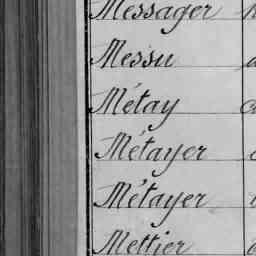 Messager
Messu
Métay
Métayer
Métayer
Mettier